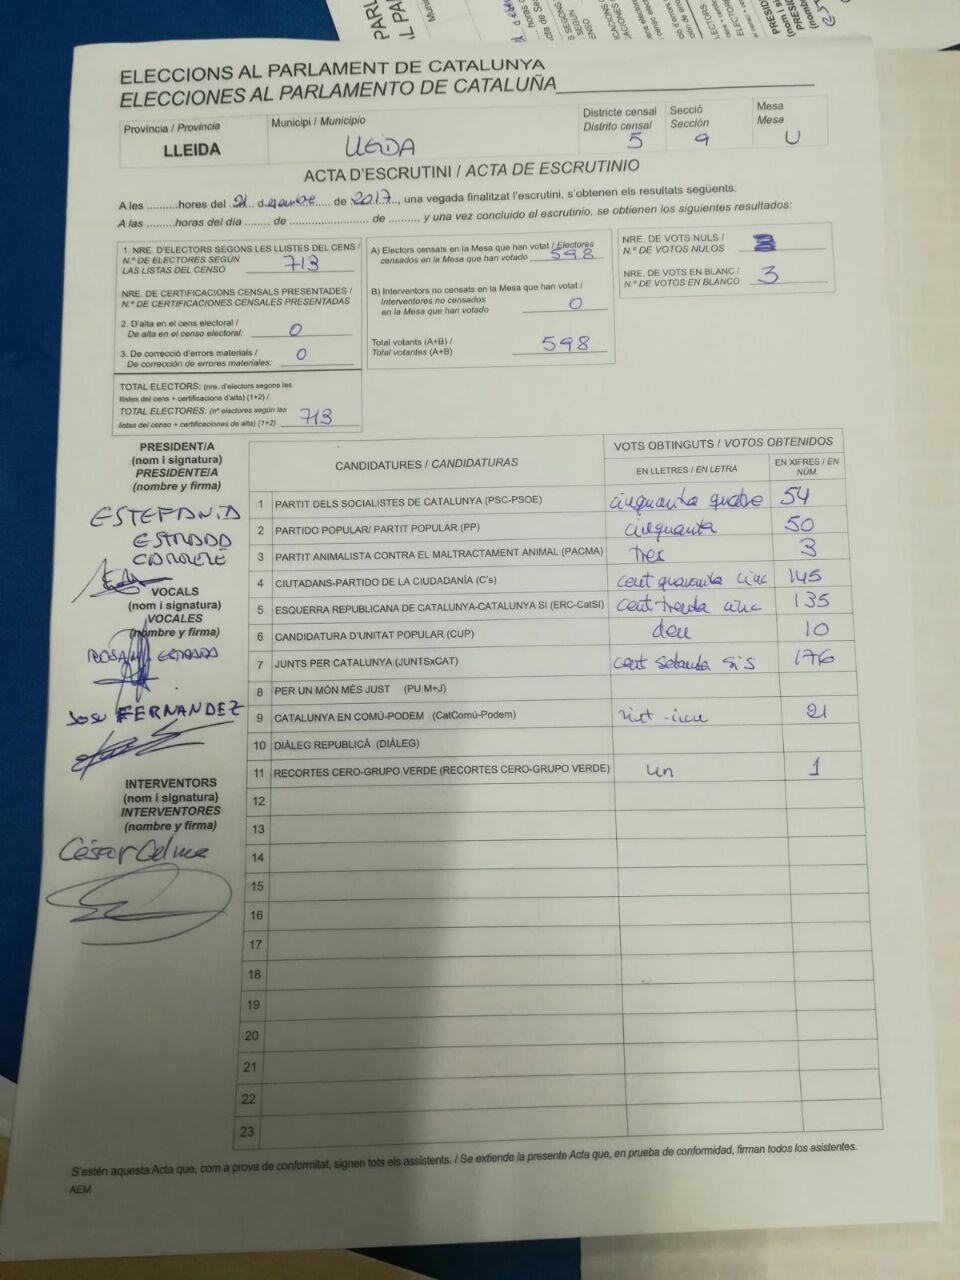 ELECCIONS AL PARLAMENT DE CATALUNYA
ELECCIONES AL PARLAMENTO DE CATALUÑA
Província / Provincia
LLEIDA
Municipi / Municipio
LLEIDA
Districte censal
Distrito censal
5
Secció
Sección
9
Mesa
Mesa
U
ACTA D'ESCRUTINI / ACTA DE ESCRUTINIO
A les .........hores del 21 desembre de 2017, una vegada finalitzat l'escrutini, s'obtenen els resultats següents:
A las .........horas del día ....... de ...................... de ........, y una vez concluido el escrutinio, se obtienen los siguientes resultados:
1. NRE. D'ELECTORS SEGONS LES LLISTES DEL CENS /
N.º DE ELECTORES SEGÚN
LAS LISTAS DEL CENSO 713
NRE. DE CERTIFICACIONS CENSALS PRESENTADES /
N.º DE CERTIFICACIONES CENSALES PRESENTADAS
2. D'alta en el cens electoral /
De alta en el censo electoral: 0
3. De correcció d'errors materials /
De corrección de errores materiales: 0
TOTAL ELECTORS: (nre. d'electors segons les
llistes del cens + certificacions d'alta) (1+2) /
TOTAL ELECTORES: (nº electores según las
listas del censo + certificaciones de alta) (1+2) 713
A) Electors censats en la Mesa que han votat / Electores
censados en la Mesa que han votado 598
B) Interventors no censats en la Mesa que han votat /
Interventores no censados
en la Mesa que han votado 0
Total votants (A+B) /
Total votantes (A+B) 598
NRE. DE VOTS NULS /
N.º DE VOTOS NULOS
NRE. DE VOTS EN BLANC /
N.º DE VOTOS EN BLANCO 3
PRESIDENT/A
(nom i signatura)
PRESIDENTE/A
(nombre y firma)
ESTEFANIA
ESTRADA
VOCALS
(nom i signatura)
VOCALES
(nombre y firma)
ROSA
JOSU FERNANDEZ
INTERVENTORS
(nom i signatura)
INTERVENTORES
(nombre y firma)
César Celma
CANDIDATURES / CANDIDATURAS
VOTS OBTINGUTS / VOTOS OBTENIDOS
EN LLETRES / EN LETRA
EN XIFRES / EN NÚM.
1 PARTIT DELS SOCIALISTES DE CATALUNYA (PSC-PSOE) cinquanta quatre 54
2 PARTIDO POPULAR/ PARTIT POPULAR (PP) cinquanta 50
3 PARTIT ANIMALISTA CONTRA EL MALTRACTAMENT ANIMAL (PACMA) tres 3
4 CIUTADANS-PARTIDO DE LA CIUDADANÍA (C's) cent quaranta cinc 145
5 ESQUERRA REPUBLICANA DE CATALUNYA-CATALUNYA SI (ERC-CatSí) cent trenta cinc 135
6 CANDIDATURA D'UNITAT POPULAR (CUP) deu 10
7 JUNTS PER CATALUNYA (JUNTSxCAT) cent setanta sis 176
8 PER UN MÓN MÉS JUST (PU M+J)
9 CATALUNYA EN COMÚ-PODEM (CatComú-Podem) vint 21
10 DIÀLEG REPUBLICÀ (DIÀLEG)
11 RECORTES CERO-GRUPO VERDE (RECORTES CERO-GRUPO VERDE) un 1
12
13
14
15
16
17
18
19
20
21
22
23
S'estén aquesta Acta que, com a prova de conformitat, signen tots els assistents. / Se extiende la presente Acta que, en prueba de conformidad, firman todos los asistentes.
AEM